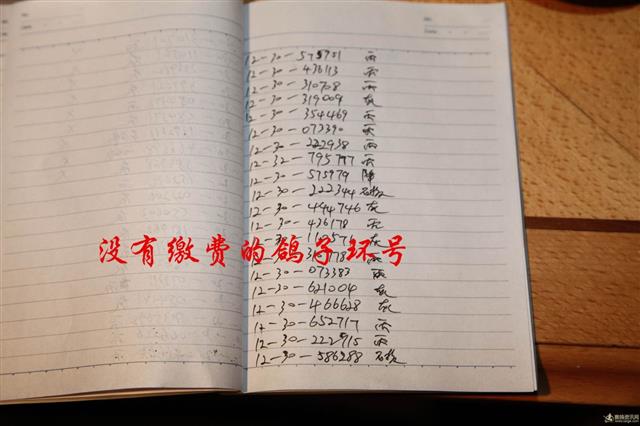 12-30-575951 雨
12-30-436113 灰
12-30-310708 雨
12-30-319009 灰
12-30-354469 雨
12-30-073390
12-30-222938 雨
12-32-795797
12-30-575979
12-30-222344
12-30-444746 灰
12-30-436178
没有缴费的鸽子环号
12-30-073383 雨
12-30-621004 灰
12-30-466628 灰
12-30-652717 雨
12-30-222915 雨
12-30-586288
赛鸽资讯网